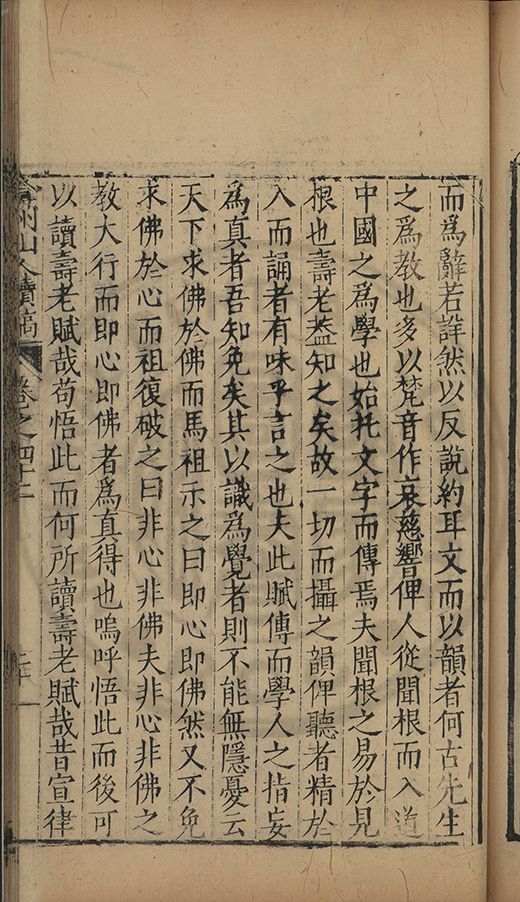 而爲辭若詳然以反說約耳文而以韻者何古先生
之爲教也多以梵音作哀慈響俾人從聞根而入道
中國之爲學也始托文字而傳焉夫聞根之易於見
根也壽老葢知之矣故一切而攝之韻俾聽者精於
入而誦者有味乎言之也夫此賦傳而學人之指妄
爲真者吾知免矣其以識爲覺者則不能無隱憂云
天下求佛於佛而馬祖示之曰即心即佛然又不免
求佛於心而祖復破之曰非心非佛夫非心非佛之
教大行而即心即佛者爲真得也嗚呼悟此而後可
以讀壽老賦哉苟悟此而何所讀壽老賦哉昔宣律
弇州山人續稿 卷之四十二